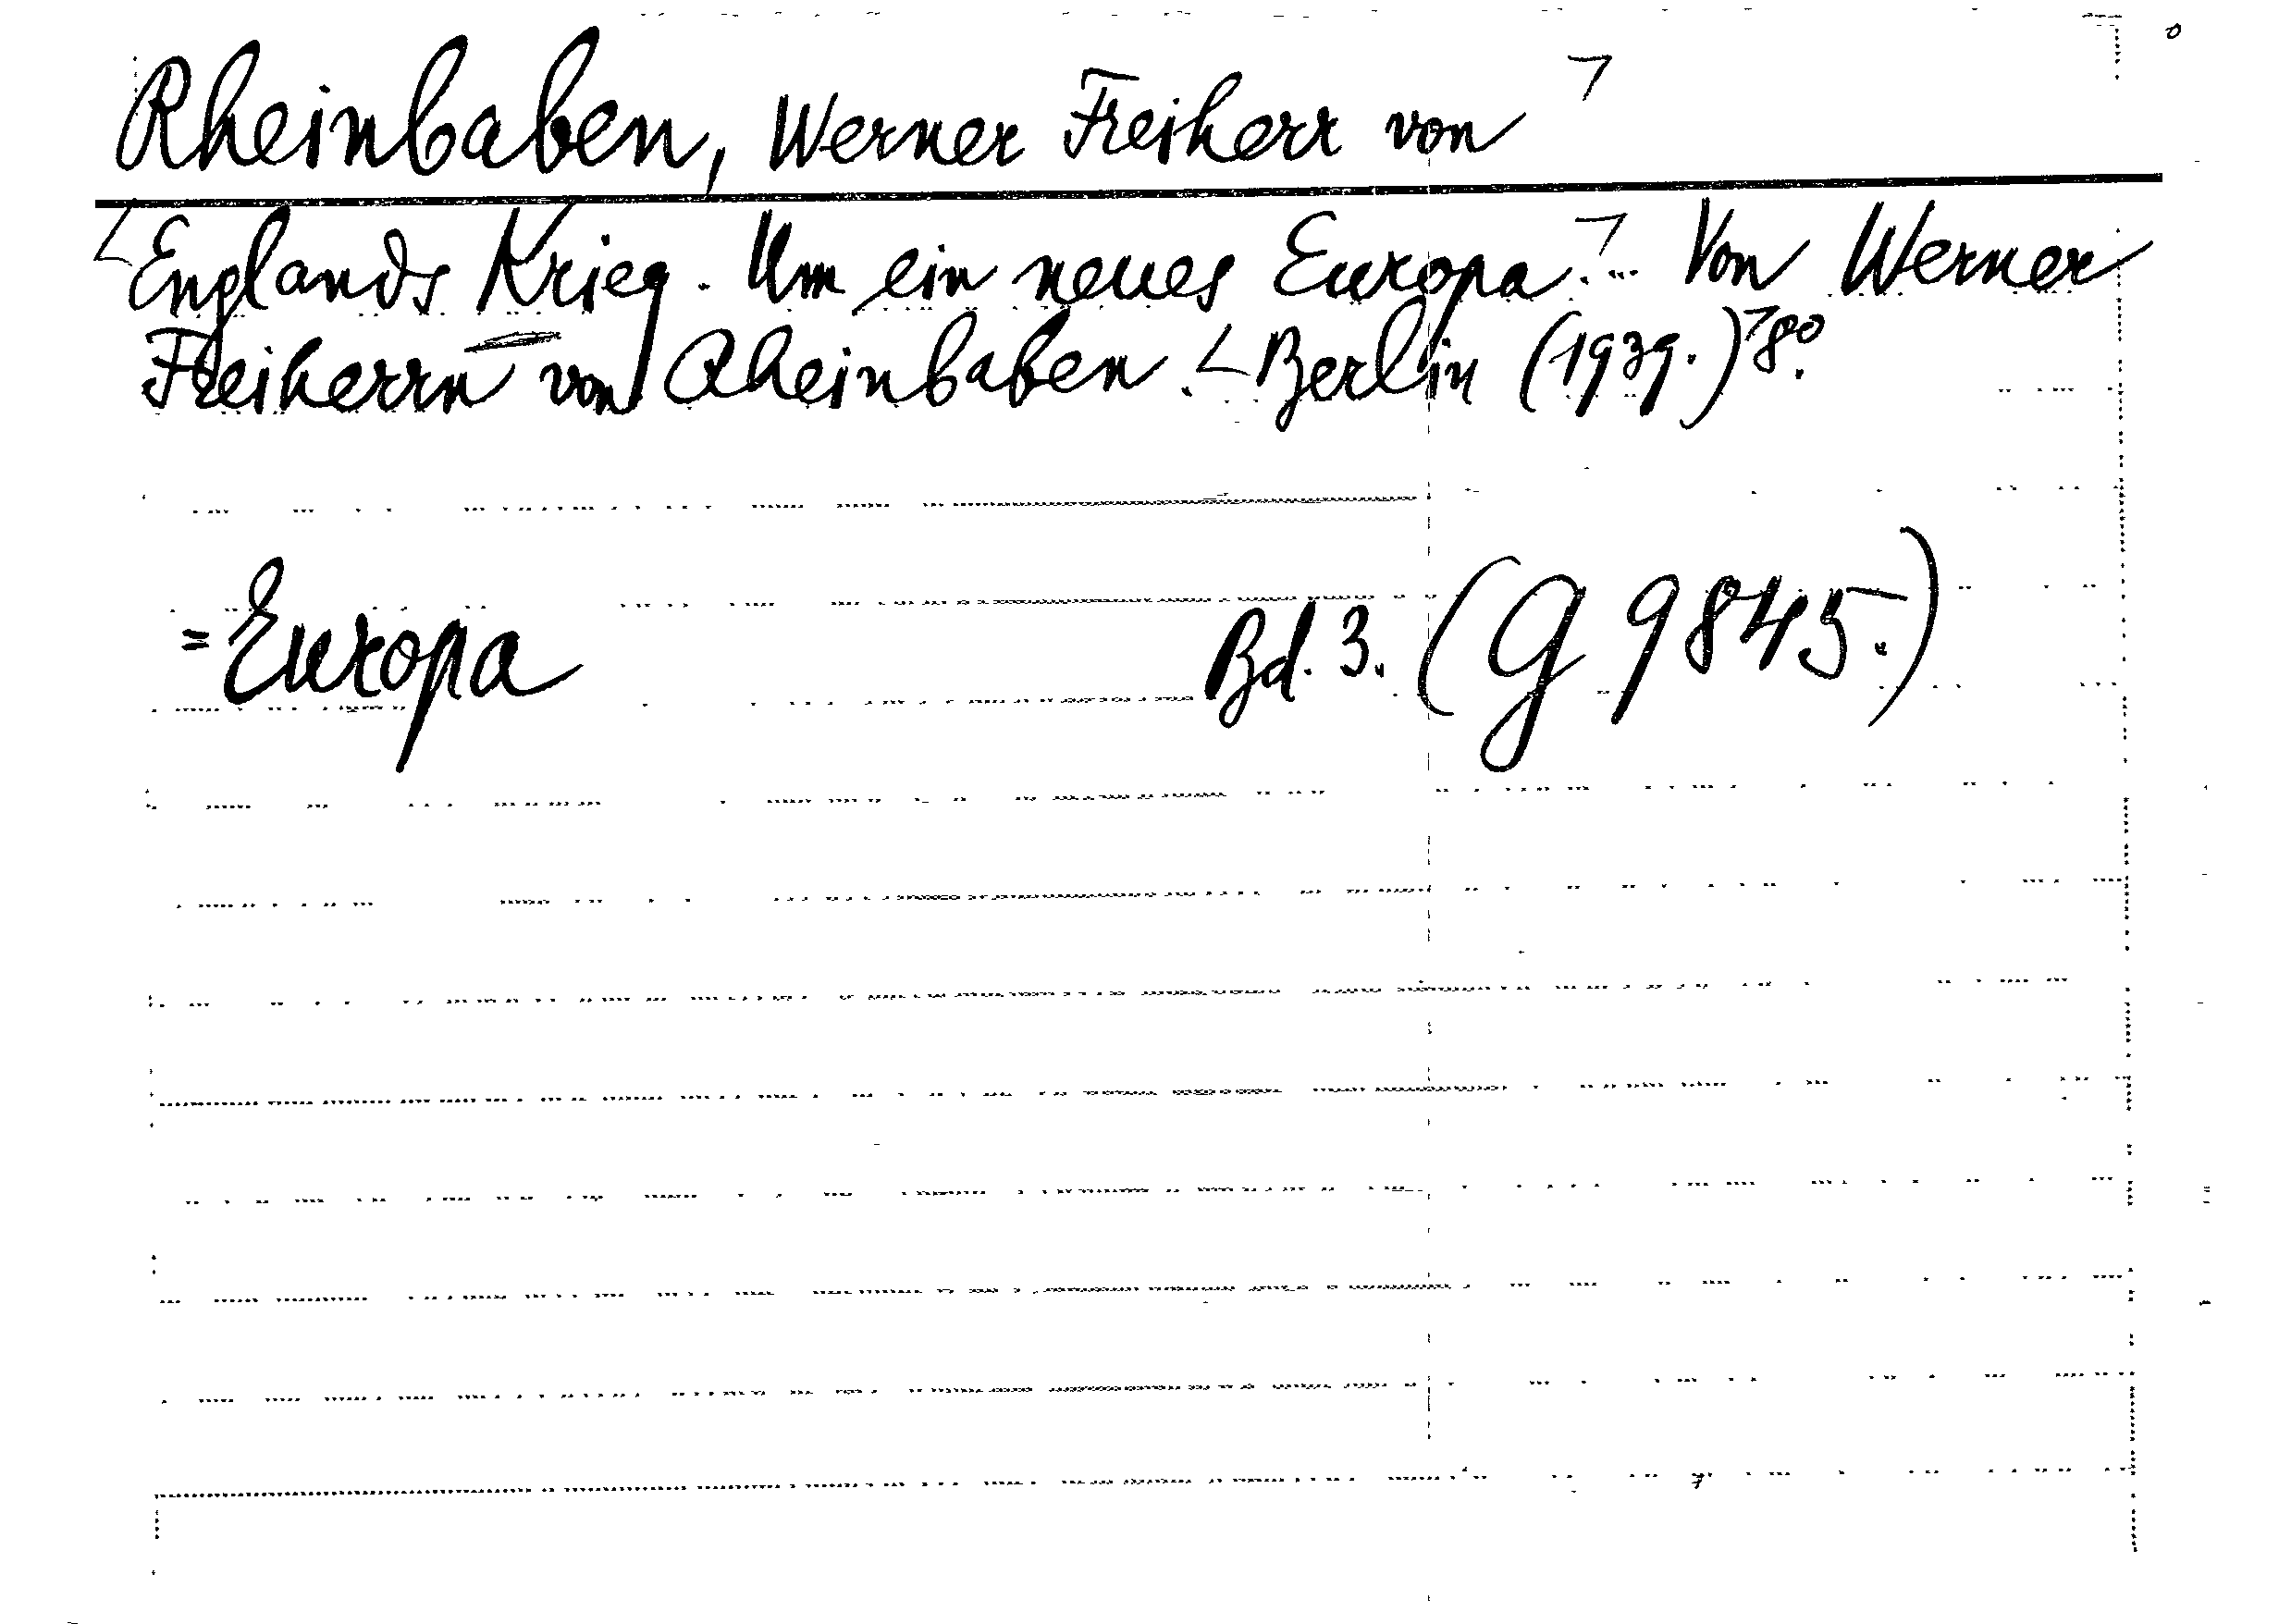 Rheinbaben, Werner Freiherr von
Englands Krieg. Um ein neues Europa?... Von Werner
Freiherrn von Rheinbaben. Berlin (1939.) 8°.
=Europa Bd. 3. (G 9845.)